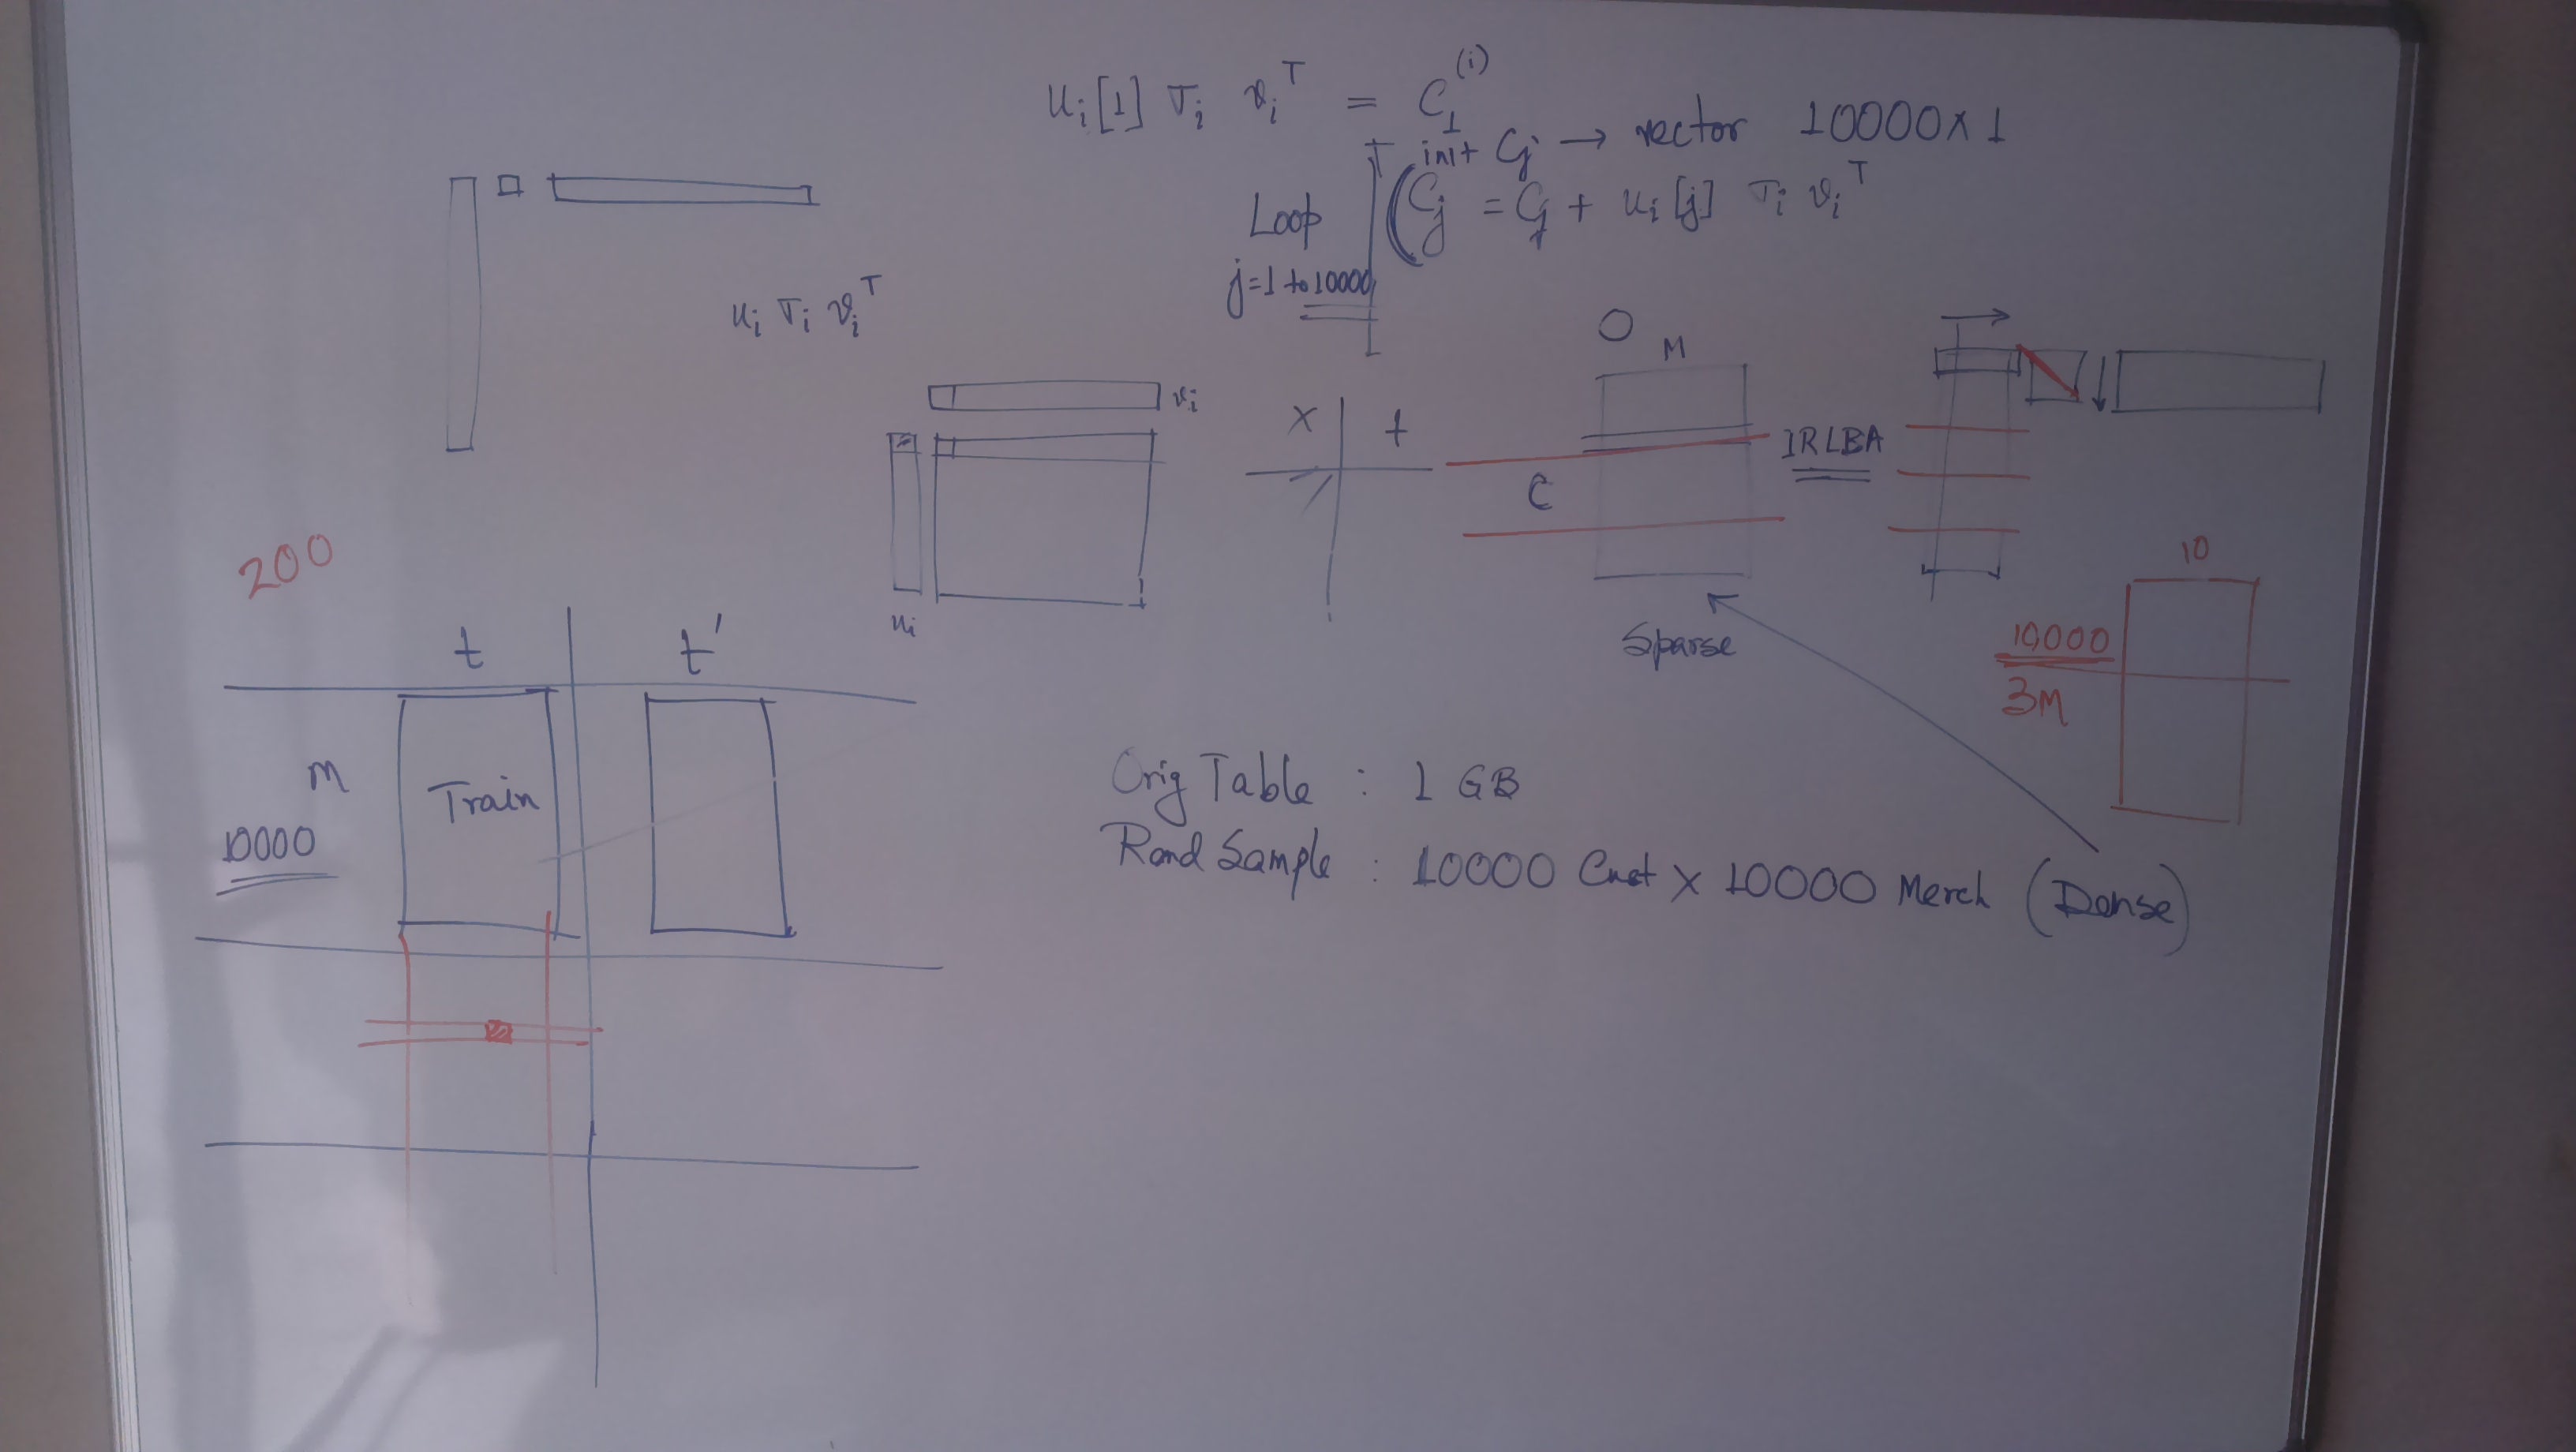 u_i[1] σ_i v_i^T = C_1^(i)
init C_j → vector 10000 x 1
Loop
j=1 to 10000
C_j = C_j + u_i[j] σ_i v_i^T
u_i σ_i v_i^T
v_i
u_i
x t
O
M
C
IRLBA
Sparse
10
10,000
3M
200
t t'
m
Train
10000
Orig Table : 1 GB
Rand Sample : 10000 Cust x 10000 Merch (Dense)